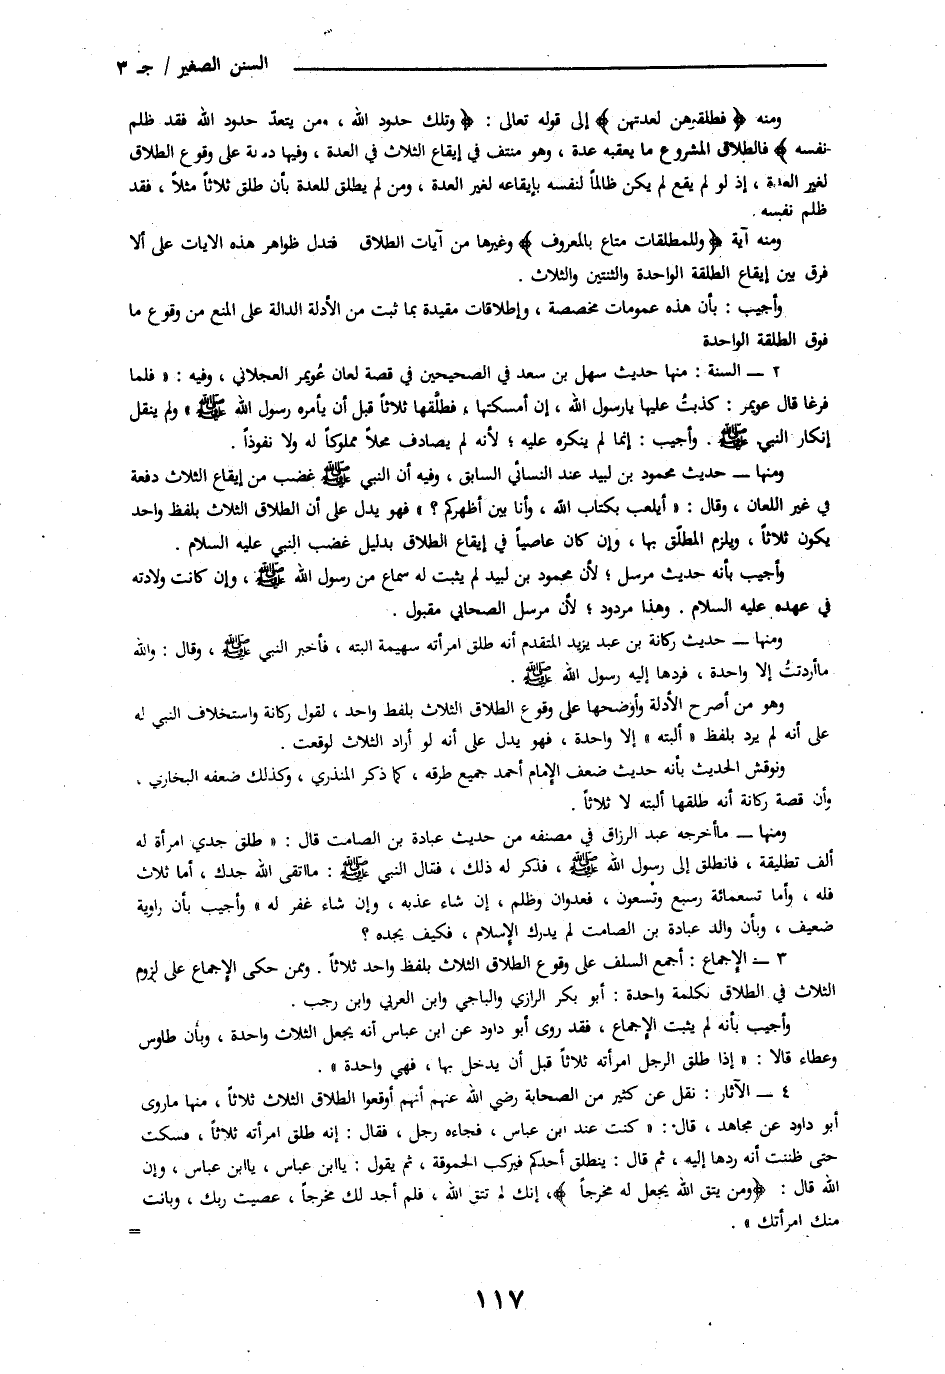 السنن الصغير / جـ ٣
ومنه ﴿ فطلقوهن لعدتهن ﴾ إلى قوله تعالى : ﴿ وتلك حدود الله ، ومن يتعدّ حدود الله فقد ظلم
نفسه ﴾ فالطلاق المشروع ما يعقبه عدة ، وهو منتف في إيقاع الثلاث في العدة ، وفيها دلالة على وقوع الطلاق
لغير العدة ، إذ لو لم يقع لم يكن ظالماً لنفسه بإيقاعه لغير العدة ، ومن لم يطلق للعدة بأن طلق ثلاثاً مثلاً ، فقد
ظلم نفسه .
ومنه آية ﴿ وللمطلقات متاع بالمعروف ﴾ وغيرها من آيات الطلاق فتدل ظواهر هذه الايات على ألا
فرق بين إيقاع الطلقة الواحدة والثنتين والثلاث .
وأجيب : بأن هذه عمومات مخصصة ، وإطلاقات مقيدة بما ثبت من الأدلة الدالة على المنع من وقوع ما
فوق الطلقة الواحدة
٢ ــ السنة : منها حديث سهل بن سعد في الصحيحين في قصة لعان عُويمر العجلاني ، وفيه : « فلما
فرغا قال عويمر : كذبتُ عليها يارسول الله ، إن أمسكتها ، فطلَّقها ثلاثاً قبل أن يأمره رسول الله ﷺ » ولم ينقل
إنكار النبي ﷺ . وأجيب : إنما لم ينكره عليه ؛ لأنه لم يصادف محلاً مملوكاً له ولا نفوذاً .
ومنها ــ حديث محمود بن لبيد عند النسائي السابق ، وفيه أن النبي ﷺ غضب من إيقاع الثلاث دفعة
في غير اللعان ، وقال : « أيلعب بكتاب الله ، وأنا بين أظهركم ؟ » فهو يدل على أن الطلاق الثلاث بلفظ واحد
يكون ثلاثاً ، ويلزم المطلّق بها ، وإن كان عاصياً في إيقاع الطلاق بدليل غضب النبي عليه السلام .
وأجيب بأنه حديث مرسل ؛ لأن محمود بن لبيد لم يثبت له سماع من رسول الله ﷺ ، وإن كانت ولادته
في عهده عليه السلام . وهذا مردود ؛ لأن مرسل الصحابي مقبول .
ومنها ــ حديث ركانة بن عبد يزيد المتقدم أنه طلق امرأته سهيمة البته ، فأخبر النبي ﷺ ، وقال : والله
ماأردتتُ إلا واحدة ، فردها إليه رسول الله ﷺ .
وهو من أصرح الأدلة وأوضحها على وقوع الطلاق الثلاث بلفط واحد ، لقول ركانة واستخلاف النبي له
على أنه لم يرد بلفظ « ألبته » إلا واحدة ، فهو يدل على أنه لو أراد الثلاث لوقعت .
ونوقش الحديث بأنه حديث ضعف الإمام أحمد جميع طرقه ، كما ذكر المنذري ، وكذلك ضعفه البخاري ،
وأن قصة ركانة أنه طلقها ألبته لا ثلاثاً .
ومنها ــ ماأخرجه عبد الرزاق في مصنفه من حديث عبادة بن الصامت قال : « طلق جدي امرأة له
ألف تطليقة ، فانطلق إلى رسول الله ﷺ ، فذكر له ذلك ، فقال النبي ﷺ : مااتقى الله جدك ، أما ثلاث
فله ، وأما تسعمائة وسبع وتسعون ، فعدوان وظلم ، إن شاء عذبه ، وإن شاء غفر له » وأجيب بأن راوية
ضعيف ، وبأن والد عبادة بن الصامت لم يدرك الإسلام ، فكيف بجده ؟
٣ ــ الإجماع : أجمع السلف على وقوع الطلاق الثلاث بلفظ واحد ثلاثاً . وممن حكى الإجماع على لزوم
الثلاث في الطلاق بكلمة واحدة : أبو بكر الرازي والباجي وابن العربي وابن رجب .
وأجيب بأنه لم يثبت الإجماع ، فقد روى أبو داود عن ابن عباس أنه يجعل الثلاث واحدة ، وبأن طاوس
وعطاء قالا : « إذا طلق الرجل امرأته ثلاثاً قبل أن يدخل بها ، فهي واحدة » .
٤ ــ الآثار : نقل عن كثير من الصحابة رضي الله عنهم أنهم أوقعوا الطلاق الثلاث ثلاثاً ، منها ماروى
أبو داود عن مجاهد ، قال : « كنت عند ابن عباس ، فجاءه رجل ، فقال : إنه طلق امرأته ثلاثاً ، فسكت
حتى ظننت أنه ردها إليه ، ثم قال : ينطلق أحدكم فيركب الحموقة ، ثم يقول : ياابن عباس ، ياابن عباس ، وإن
الله قال : ﴿ومن يتق الله يجعل له مخرجاً ﴾، إنك لم تتق الله ، فلم أجد لك مخرجاً ، عصيت ربك ، وبانت
منك امرأتك » .
=
١١٧